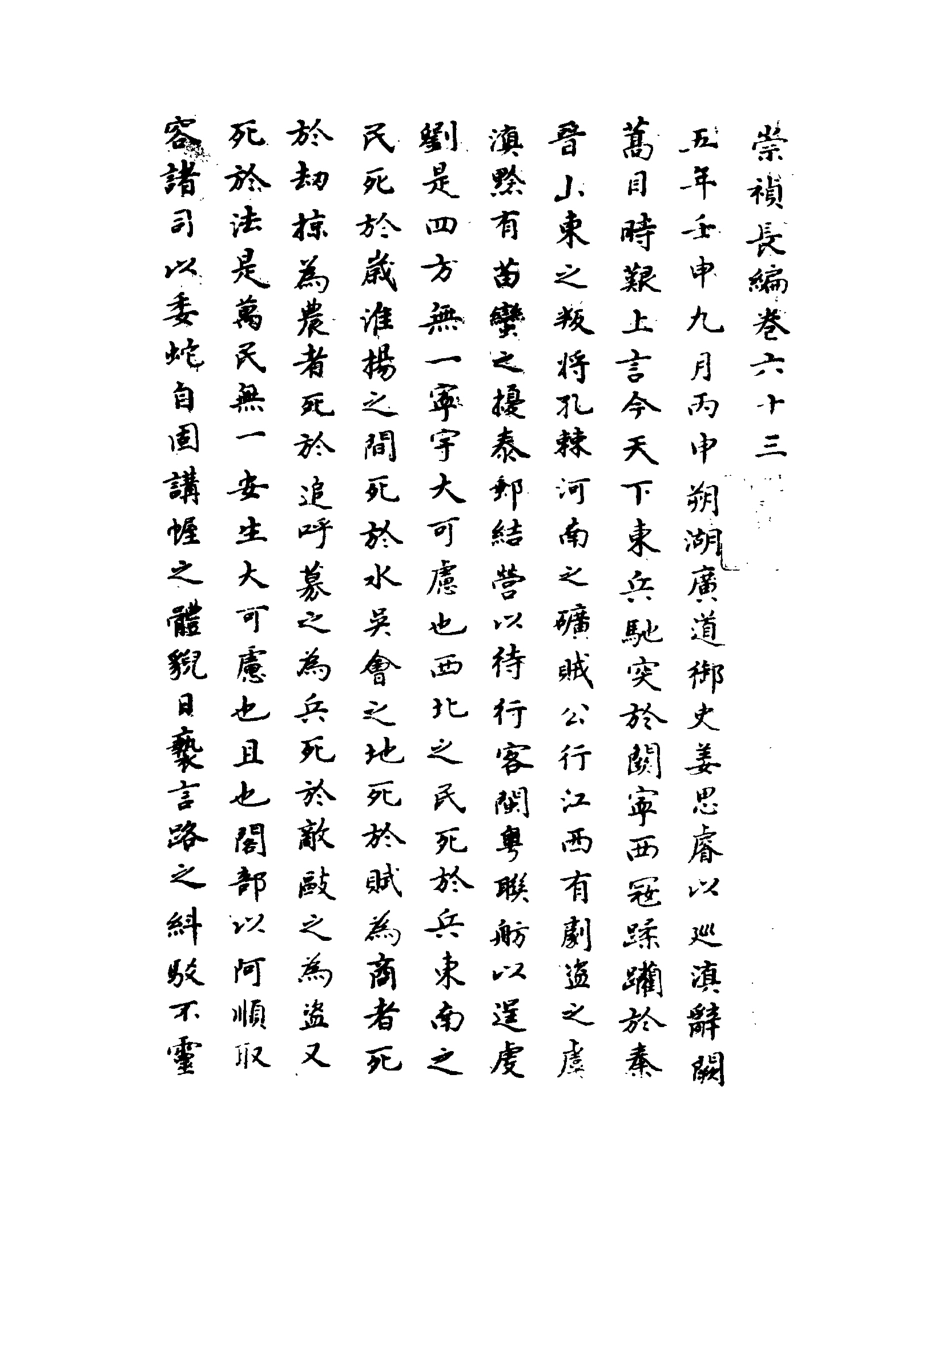 崇禎長編卷六十三
五年壬申九月丙申朔湖廣道御史姜思睿以廵滇辭闕
蒿目時艱上言今天下東兵馳突於関寧西冦蹂躪於秦
晉山東之叛将孔棘河南之礦賊公行江西有劇盜之虞
滇黔有苗蠻之擾泰郵結營以待行客閩粤聨舫以逞虔
劉是四方無一寧宇大可慮也西北之民死於兵東南之
民死於歲淮揚之間死於水吳會之地死於賦為商者死
於刼掠為農者死於追呼募之為兵死於敵敺之為盜又
死於法是萬民無一安生大可慮也且也閣部以阿順取
容諸司以委蛇自固講幄之體貌日褻言路之糾駁不靈